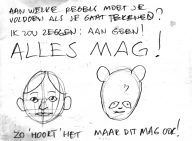 AAN WELKE REGELS MOET JE
VOLDOEN ALS JE GAAT TEKENEN?
IK ZOU ZEGGEN: AAN GEEN!
ALLES MAG!
ZO 'HOORT' HET MAAR DIT MAG OOK!